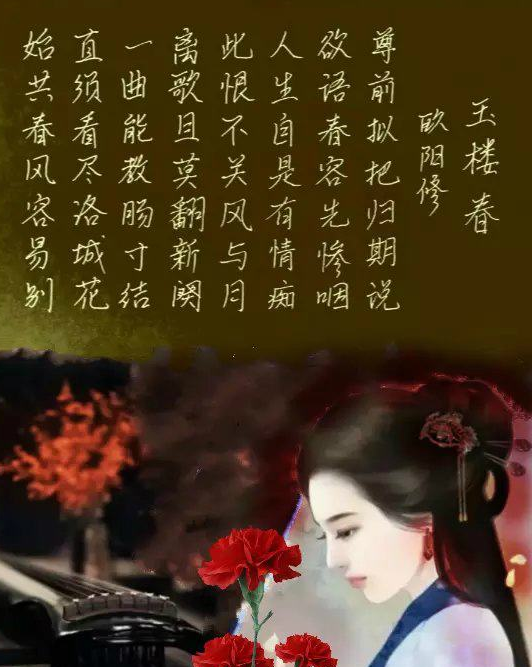 玉楼春
欧阳修
尊前拟把归期说
欲语春容先惨咽
人生自是有情痴
此恨不关风与月
离歌且莫翻新阕
一曲能教肠寸结
直须看尽洛城花
始共春风容易别